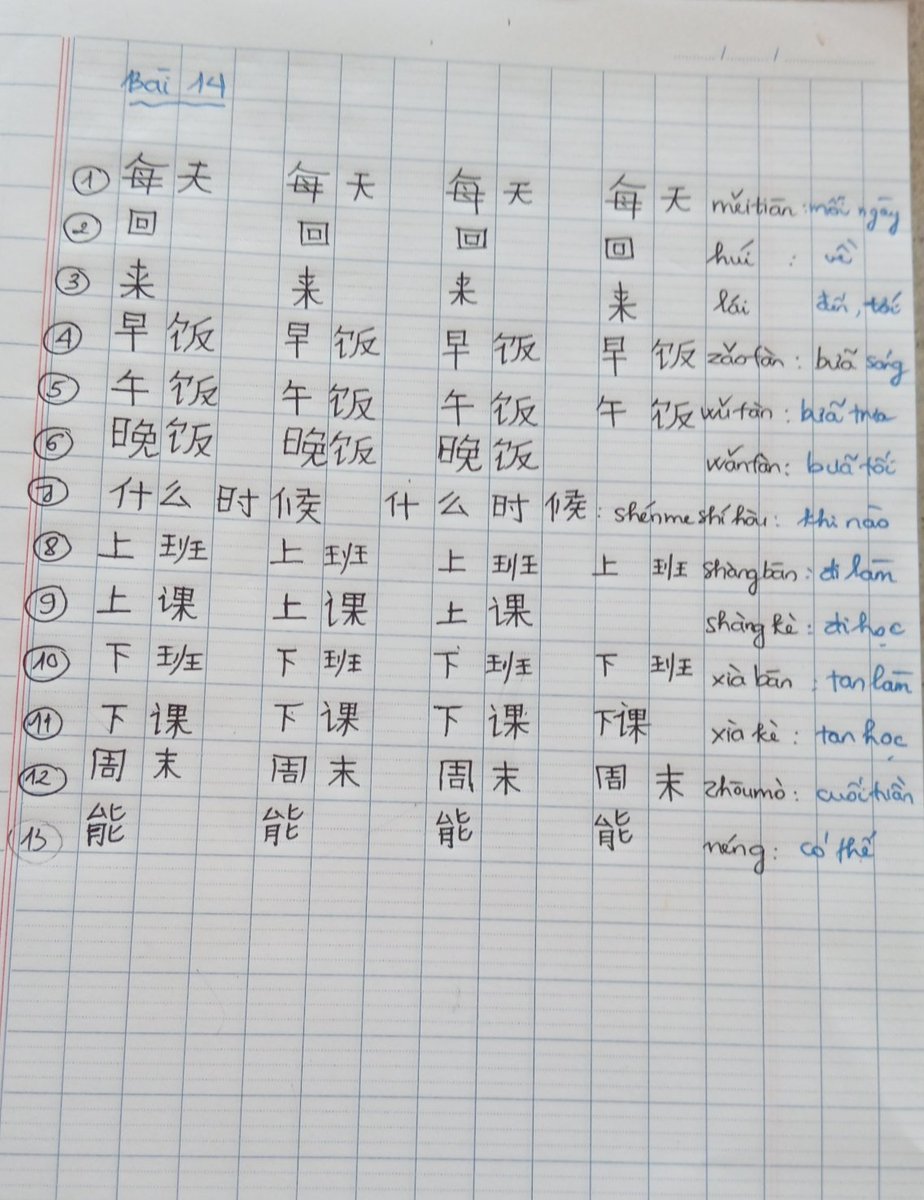 Bài 14
① 每天 每天 每天 每天 měitiān: mỗi ngày
② 回 回 回 回 huí : về
③ 来 来 来 来 lái đến, tới
④ 早饭 早饭 早饭 早饭 zǎofàn: bữa sáng
⑤ 午饭 午饭 午饭 午饭 wǔfàn: bữa trưa
⑥ 晚饭 晚饭 晚饭 wǎnfàn: buổi tối
⑦ 什么时候 什么时候: shénme shí hòu: khi nào
⑧ 上班 上班 上班 上班 shàng bān: đi làm
⑨ 上课 上课 上课 shàng kè: đi học
⑩ 下班 下班 下班 下班 xià bān: tan làm
⑪ 下课 下课 下课 下课 xià kè: tan học
⑫ 周末 周末 周末 周末 zhōumò: cuối tuần
⑬ 能 能 能 能 néng: có thể